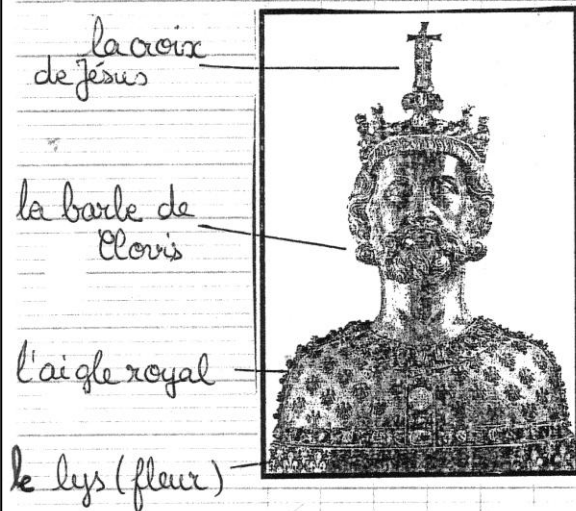 la croix
de Jésus
la barbe de
Clovis
l'aigle royal
le lys (fleur)